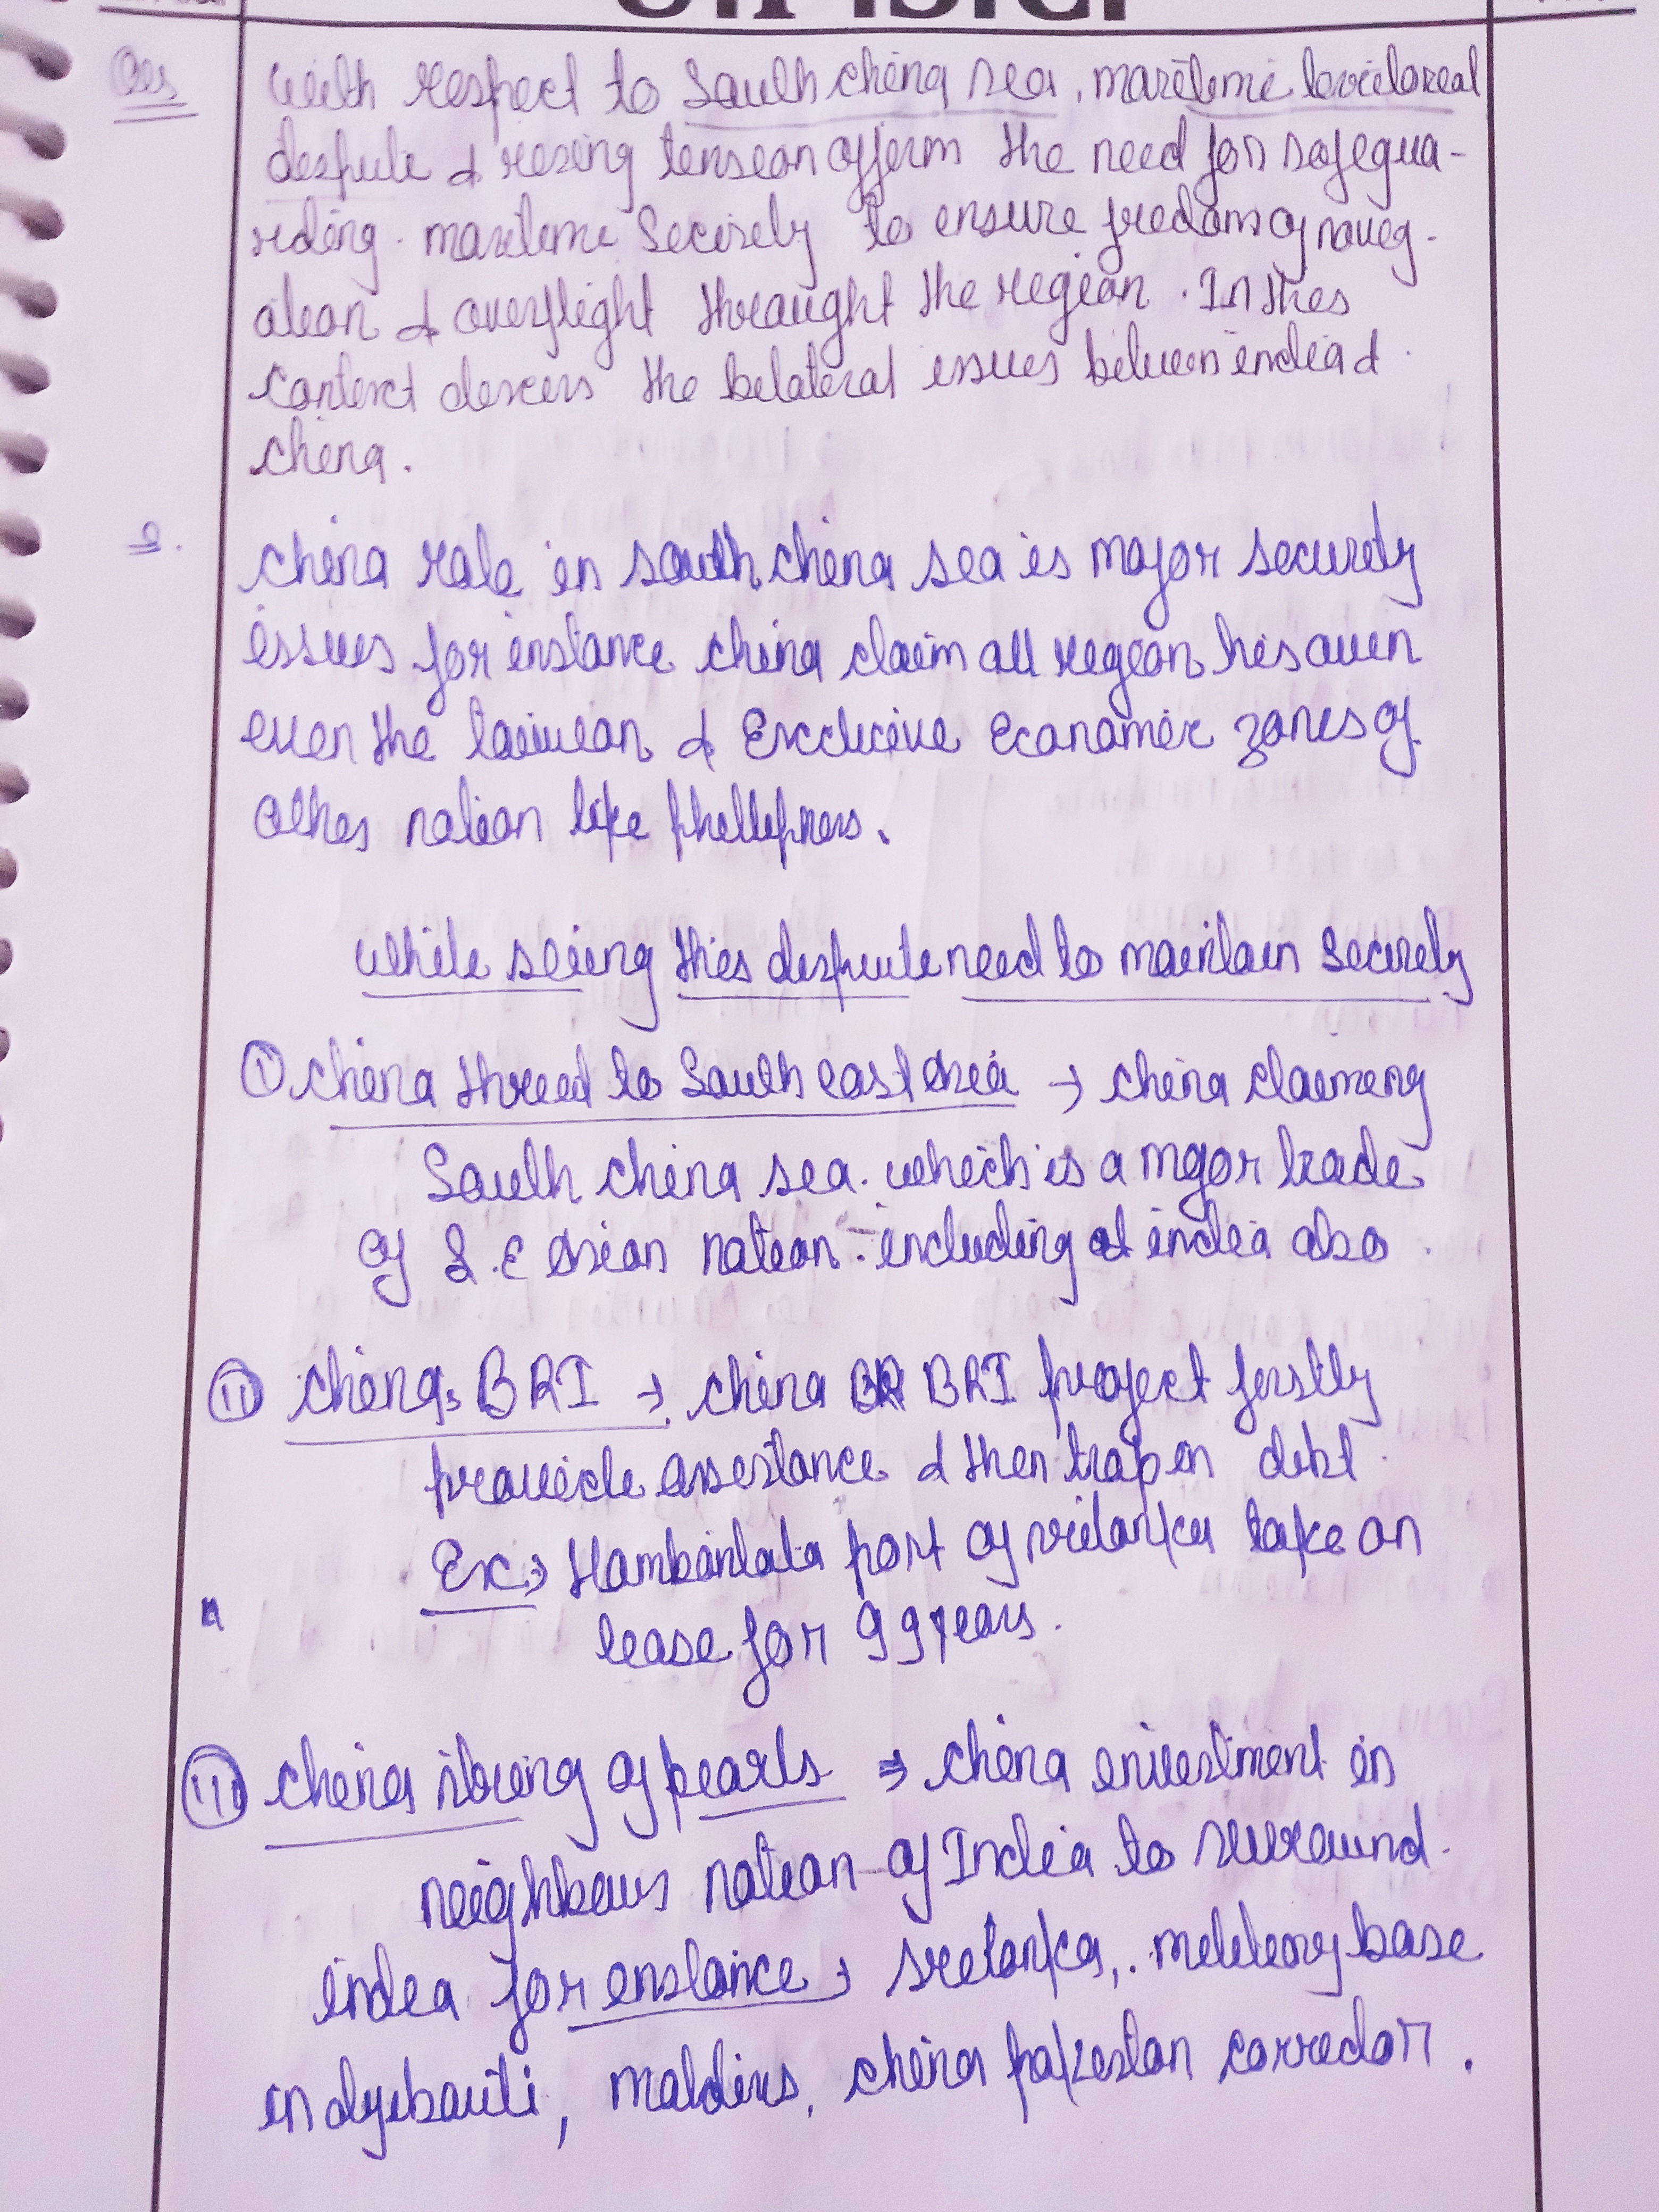 Ques with respect to South china sea, maritime territoreal
despute & rising tension affirm the need for safegua-
rding maritime Security to ensure fredom of navig-
ation & overflight throught the region. In this
context discuss the bilateral issues between india &
china.
china role in south china sea is major security
issues for instance china claim all region his own
even the taiwan & Exclucive Economic zones of
other nation like phillipnes.
while seing this dispute need to maintain security
① china thread to South east Asia → china claiming
South china sea. which is a mjor trade
of S.E Asian nation - including of india also
⑪ china's BRI → china BRI project firstly
provide assistance & then trap in debt
Ex → Hambantata port of srilanka take on
lease for 99 years.
⑪⑪ china string of pearls → china investment in
neighbours nation of India to surround
india for instance → srelanka, miletary base
in dyibouti, maldives, china pakistan corredor.